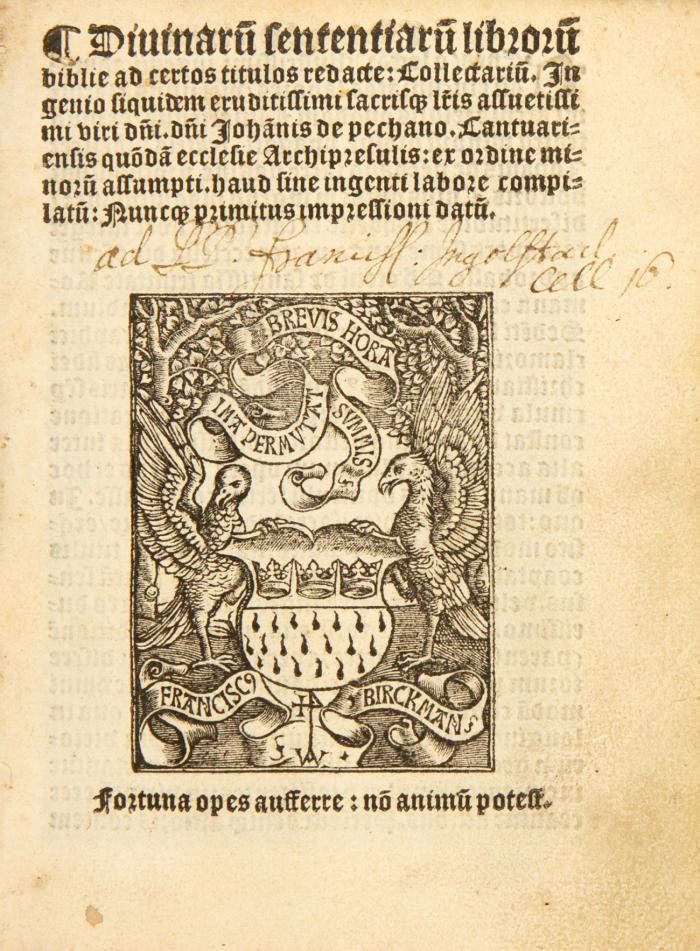 ¶ Diuinarū sententiarū librorū
biblie ad certos titulos redacte: Collectariū. In
genio siquidem eruditissimi sacrisqꝫ lr̄is assuetissi
mi viri dn̄i.dn̄i Johānis de pechano. Cantuari=
ensis quōdā ecclesie Archipresulis: ex ordine mi=
norū assumpti. haud sine ingenti labore compi=
latū: Nuncqꝫ primitus impressioni datū.
ad
Ingolstad
cell 16.
BREVIS HORA
IMA PERMVTAT
SVMMIS
FRANCISCꝰ
BIRCKMANS
F W
Fortuna opes aufferre: nō animū potest.